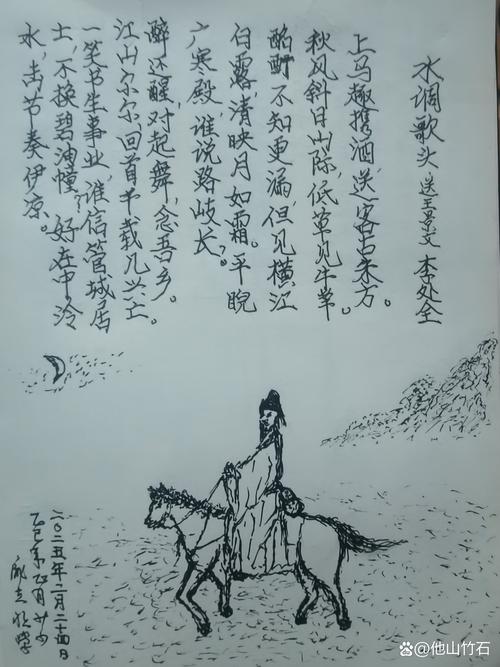 水调歌头 送王景文 李处全
上马趣携酒,送客古朱方。
秋风斜日山际,低草见牛羊。
酩酊不知更漏,但见横江
白露,清映月如霜。平睨
广寒殿,谁说路歧长?。
醉还醒,对起舞,念吾乡。
江山尔尔,回首千载几兴亡。
一笑书生事业,谁信管城居
士,不换碧油幢?好在中泠
水,击节奏伊凉。
二〇二五年二月二十四日
乙巳年正月廿七
@他山竹石